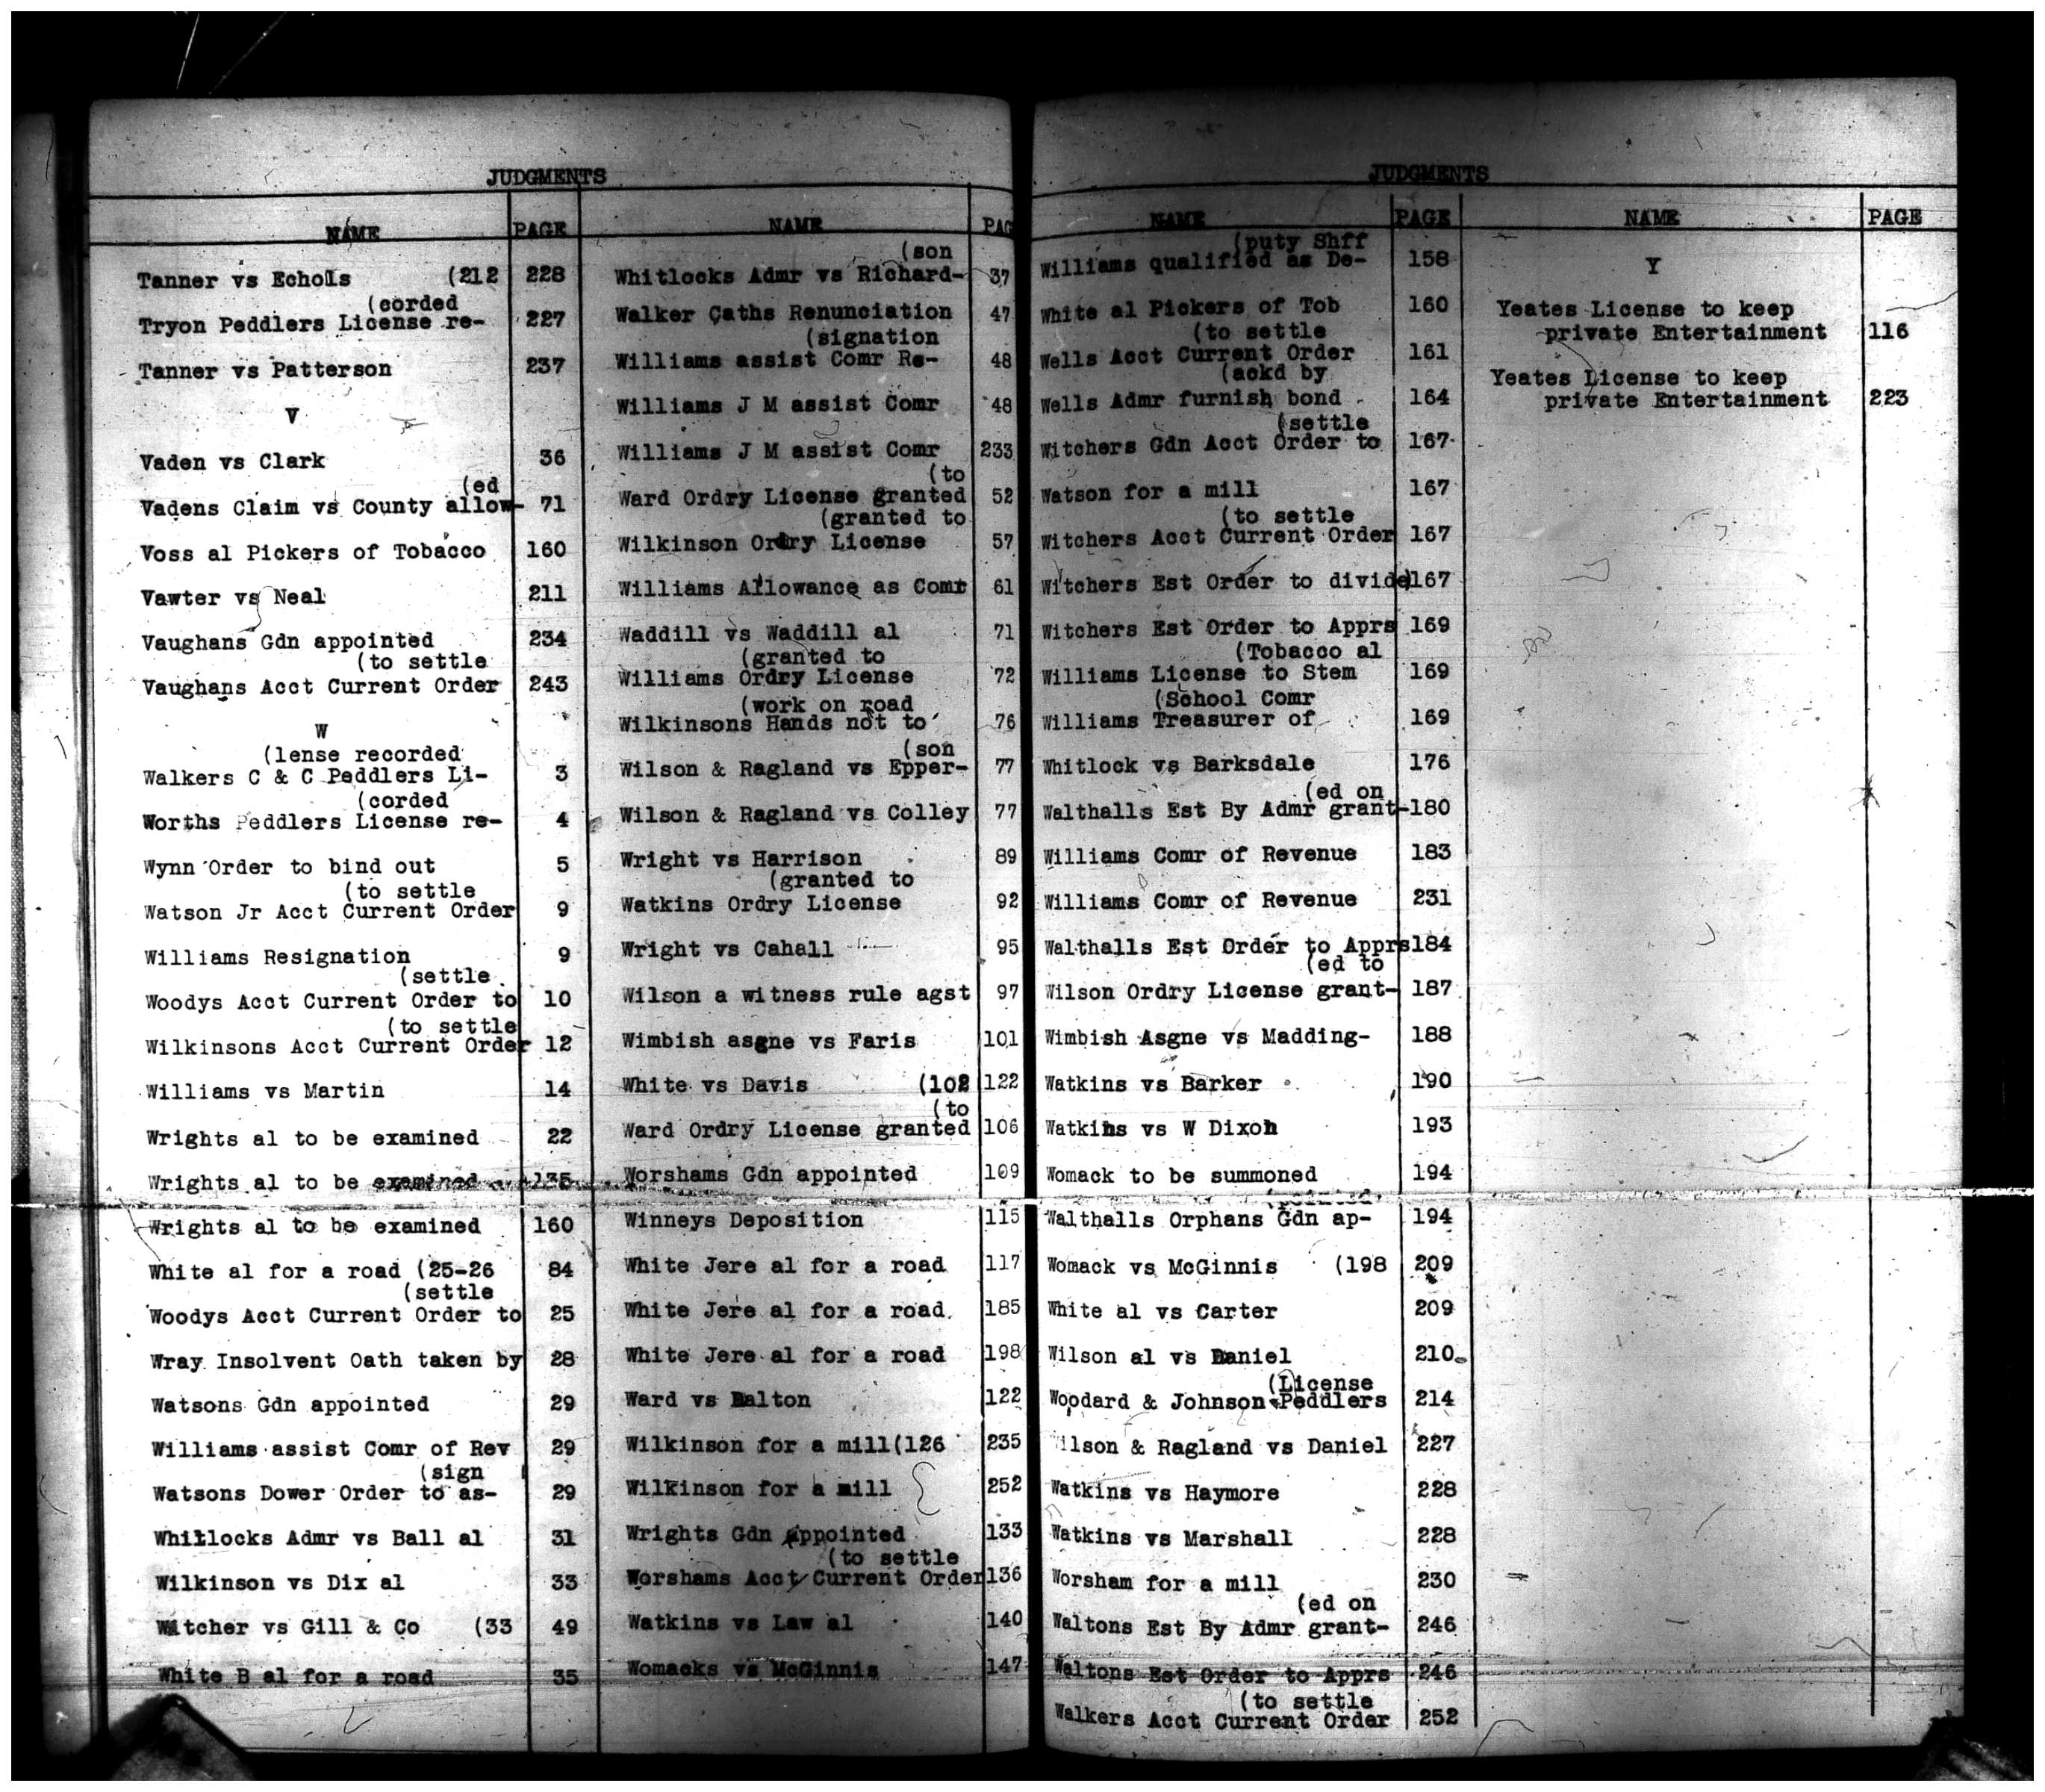 JUDGMENTS
NAME PAGE
Tanner vs Echols (212 228
(corded
Tryon Peddlers License re- 227
Tanner vs Patterson 237
V
Vaden vs Clark 36
(ed
Vadens Claim vs County allow- 71
Voss al Pickers of Tobacco 160
Vawter vs Neal 211
Vaughans Gdn appointed 234
(to settle
Vaughans Acct Current Order 243
W
(lense recorded
Walkers C & C Peddlers Li- 3
(corded
Worths Peddlers License re- 4
Wynn Order to bind out 5
(to settle
Watson Jr Acct Current Order 9
Williams Resignation 9
(settle
Woodys Acct Current Order to 10
(to settle
Wilkinsons Acct Current Order 12
Williams vs Martin 14
Wrights al to be examined 22
Wrights al to be examined 135
Wrights al to be examined 160
White al for a road (25-26 84
(settle
Woodys Acct Current Order to 25
Wray Insolvent Oath taken by 28
Watsons Gdn appointed 29
Williams assist Comr of Rev 29
(sign
Watsons Dower Order to as- 29
Whitlocks Admr vs Ball al 31
Wilkinson vs Dix al 33
Witcher vs Gill & Co (33 49
White B al for a road 35
NAME PAG
(son
Whitlocks Admr vs Richard- 37
Walker Caths Renunciation 47
(signation
Williams assist Comr Re- 48
Williams J M assist Comr 48
Williams J M assist Comr 233
(to
Ward Ordry License granted 52
(granted to
Wilkinson Ordry License 57
Williams Allowance as Comr 61
Waddill vs Waddill al 71
(granted to
Williams Ordry License 72
(work on road
Wilkinsons Hands not to 76
(son
Wilson & Ragland vs Epper- 77
Wilson & Ragland vs Colley 77
Wright vs Harrison 89
(granted to
Watkins Ordry License 92
Wright vs Cahall 95
Wilson a witness rule agst 97
Wimbish asgne vs Faris 101
White vs Davis (102 122
(to
Ward Ordry License granted 106
Worshams Gdn appointed 109
Winneys Deposition 115
White Jere al for a road 117
White Jere al for a road 185
White Jere al for a road 198
Ward vs Dalton 122
Wilkinson for a mill(126 235
Wilkinson for a mill 252
Wrights Gdn appointed 133
(to settle
Worshams Acct Current Order 136
Watkins vs Law al 140
Womacks vs McGinnis 147
JUDGMENTS
NAME PAGE
(puty Shff
Williams qualified as De- 158
White al Pickers of Tob 160
(to settle
Wells Acct Current Order 161
(ackd by
Wells Admr furnish bond 164
(settle
Witchers Gdn Acct Order to 167
Watson for a mill 167
(to settle
Witchers Acct Current Order 167
Witchers Est Order to divide 167
Witchers Est Order to Apprs 169
(Tobacco al
Williams License to Stem 169
(School Comr
Williams Treasurer of 169
Whitlock vs Barksdale 176
(ed on
Walthalls Est By Admr grant- 180
Williams Comr of Revenue 183
Williams Comr of Revenue 231
Walthalls Est Order to Apprs 184
(ed to
Wilson Ordry License grant- 187
Wimbish Asgne vs Madding- 188
Watkins vs Barker 190
Watkins vs W Dixon 193
Womack to be summoned 194
Walthalls Orphans Gdn ap- 194
Womack vs McGinnis (198 209
White al vs Carter 209
Wilson al vs Daniel 210
(License
Woodard & Johnson Peddlers 214
Wilson & Ragland vs Daniel 227
Watkins vs Haymore 228
Watkins vs Marshall 228
Worsham for a mill 230
(ed on
Waltons Est By Admr grant- 246
Waltons Est Order to Apprs 246
(to settle
Walkers Acct Current Order 252
NAME PAGE
Y
Yeates License to keep
private Entertainment 116
Yeates License to keep
private Entertainment 223